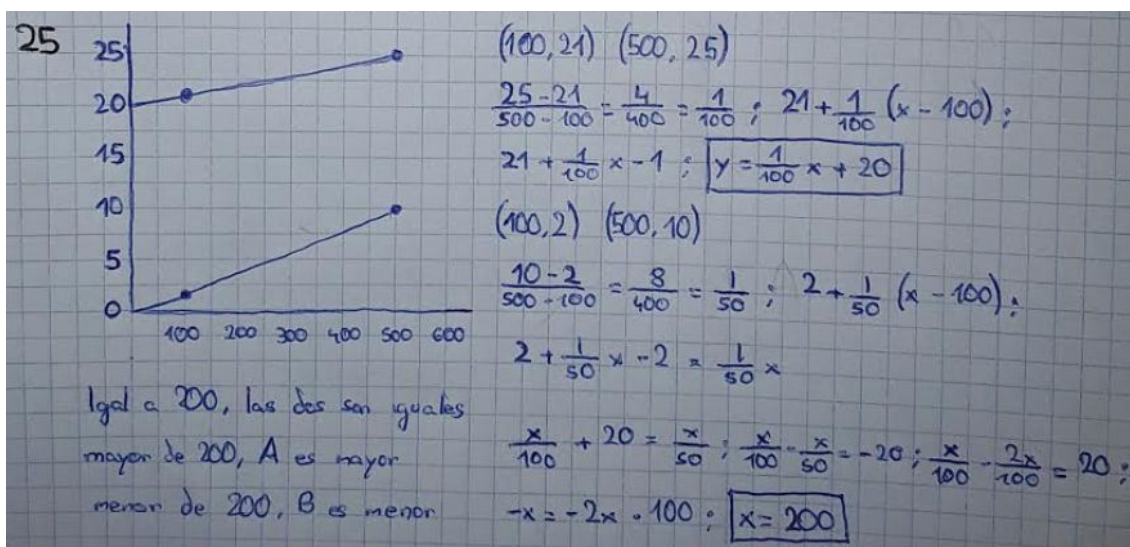 25
25
20
15
10
5
0
100 200 300 400 500 600
Igal a 200, las dos son iguales
mayor de 200, A es mayor
menor de 200, B es menor
(100,21) (500,25)
25-21/500-100 = 4/400 = 1/100 ; 21 + 1/100 (x - 100) ;
21 + 1/100 x - 1 ; y = 1/100 x + 20
(100,2) (500,10)
10-2/500-100 = 8/400 = 1/50 ; 2 + 1/50 (x - 100) ;
2 + 1/50 x - 2 = 1/50 x
x/100 + 20 = x/50 ; x/100 - x/50 = -20 ; x/100 - 2x/100 = 20 ;
-x = -2x · 100 ; x = 200